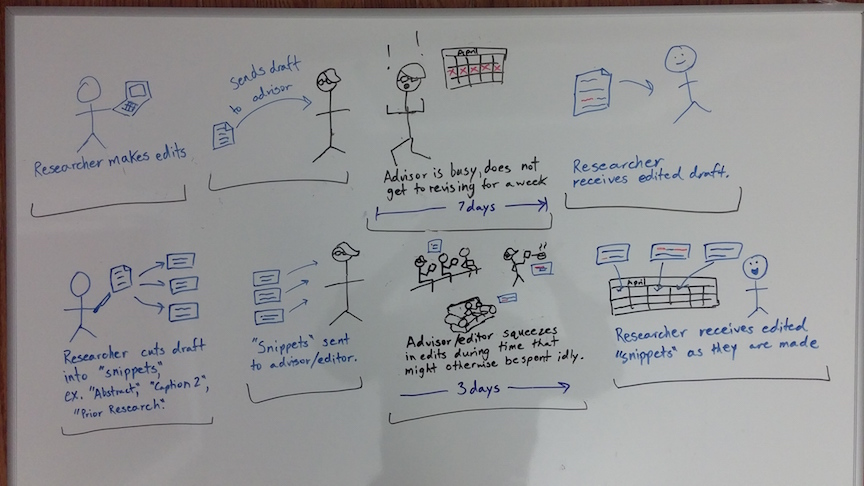 Researcher makes edits
sends draft
to advisor
! !
April
x x x x x
Advisor is busy, does not
get to revising for a week
7 days
Researcher
receives edited draft.
Researcher cuts draft
into "snippets",
ex. "Abstract", "Caption 2",
"Prior Research".
"Snippets" sent
to advisor/editor.
Advisor/editor squeezes
in edits during time that
might otherwise be spent idly.
3 days
April
Researcher receives edited
"snippets" as they are made